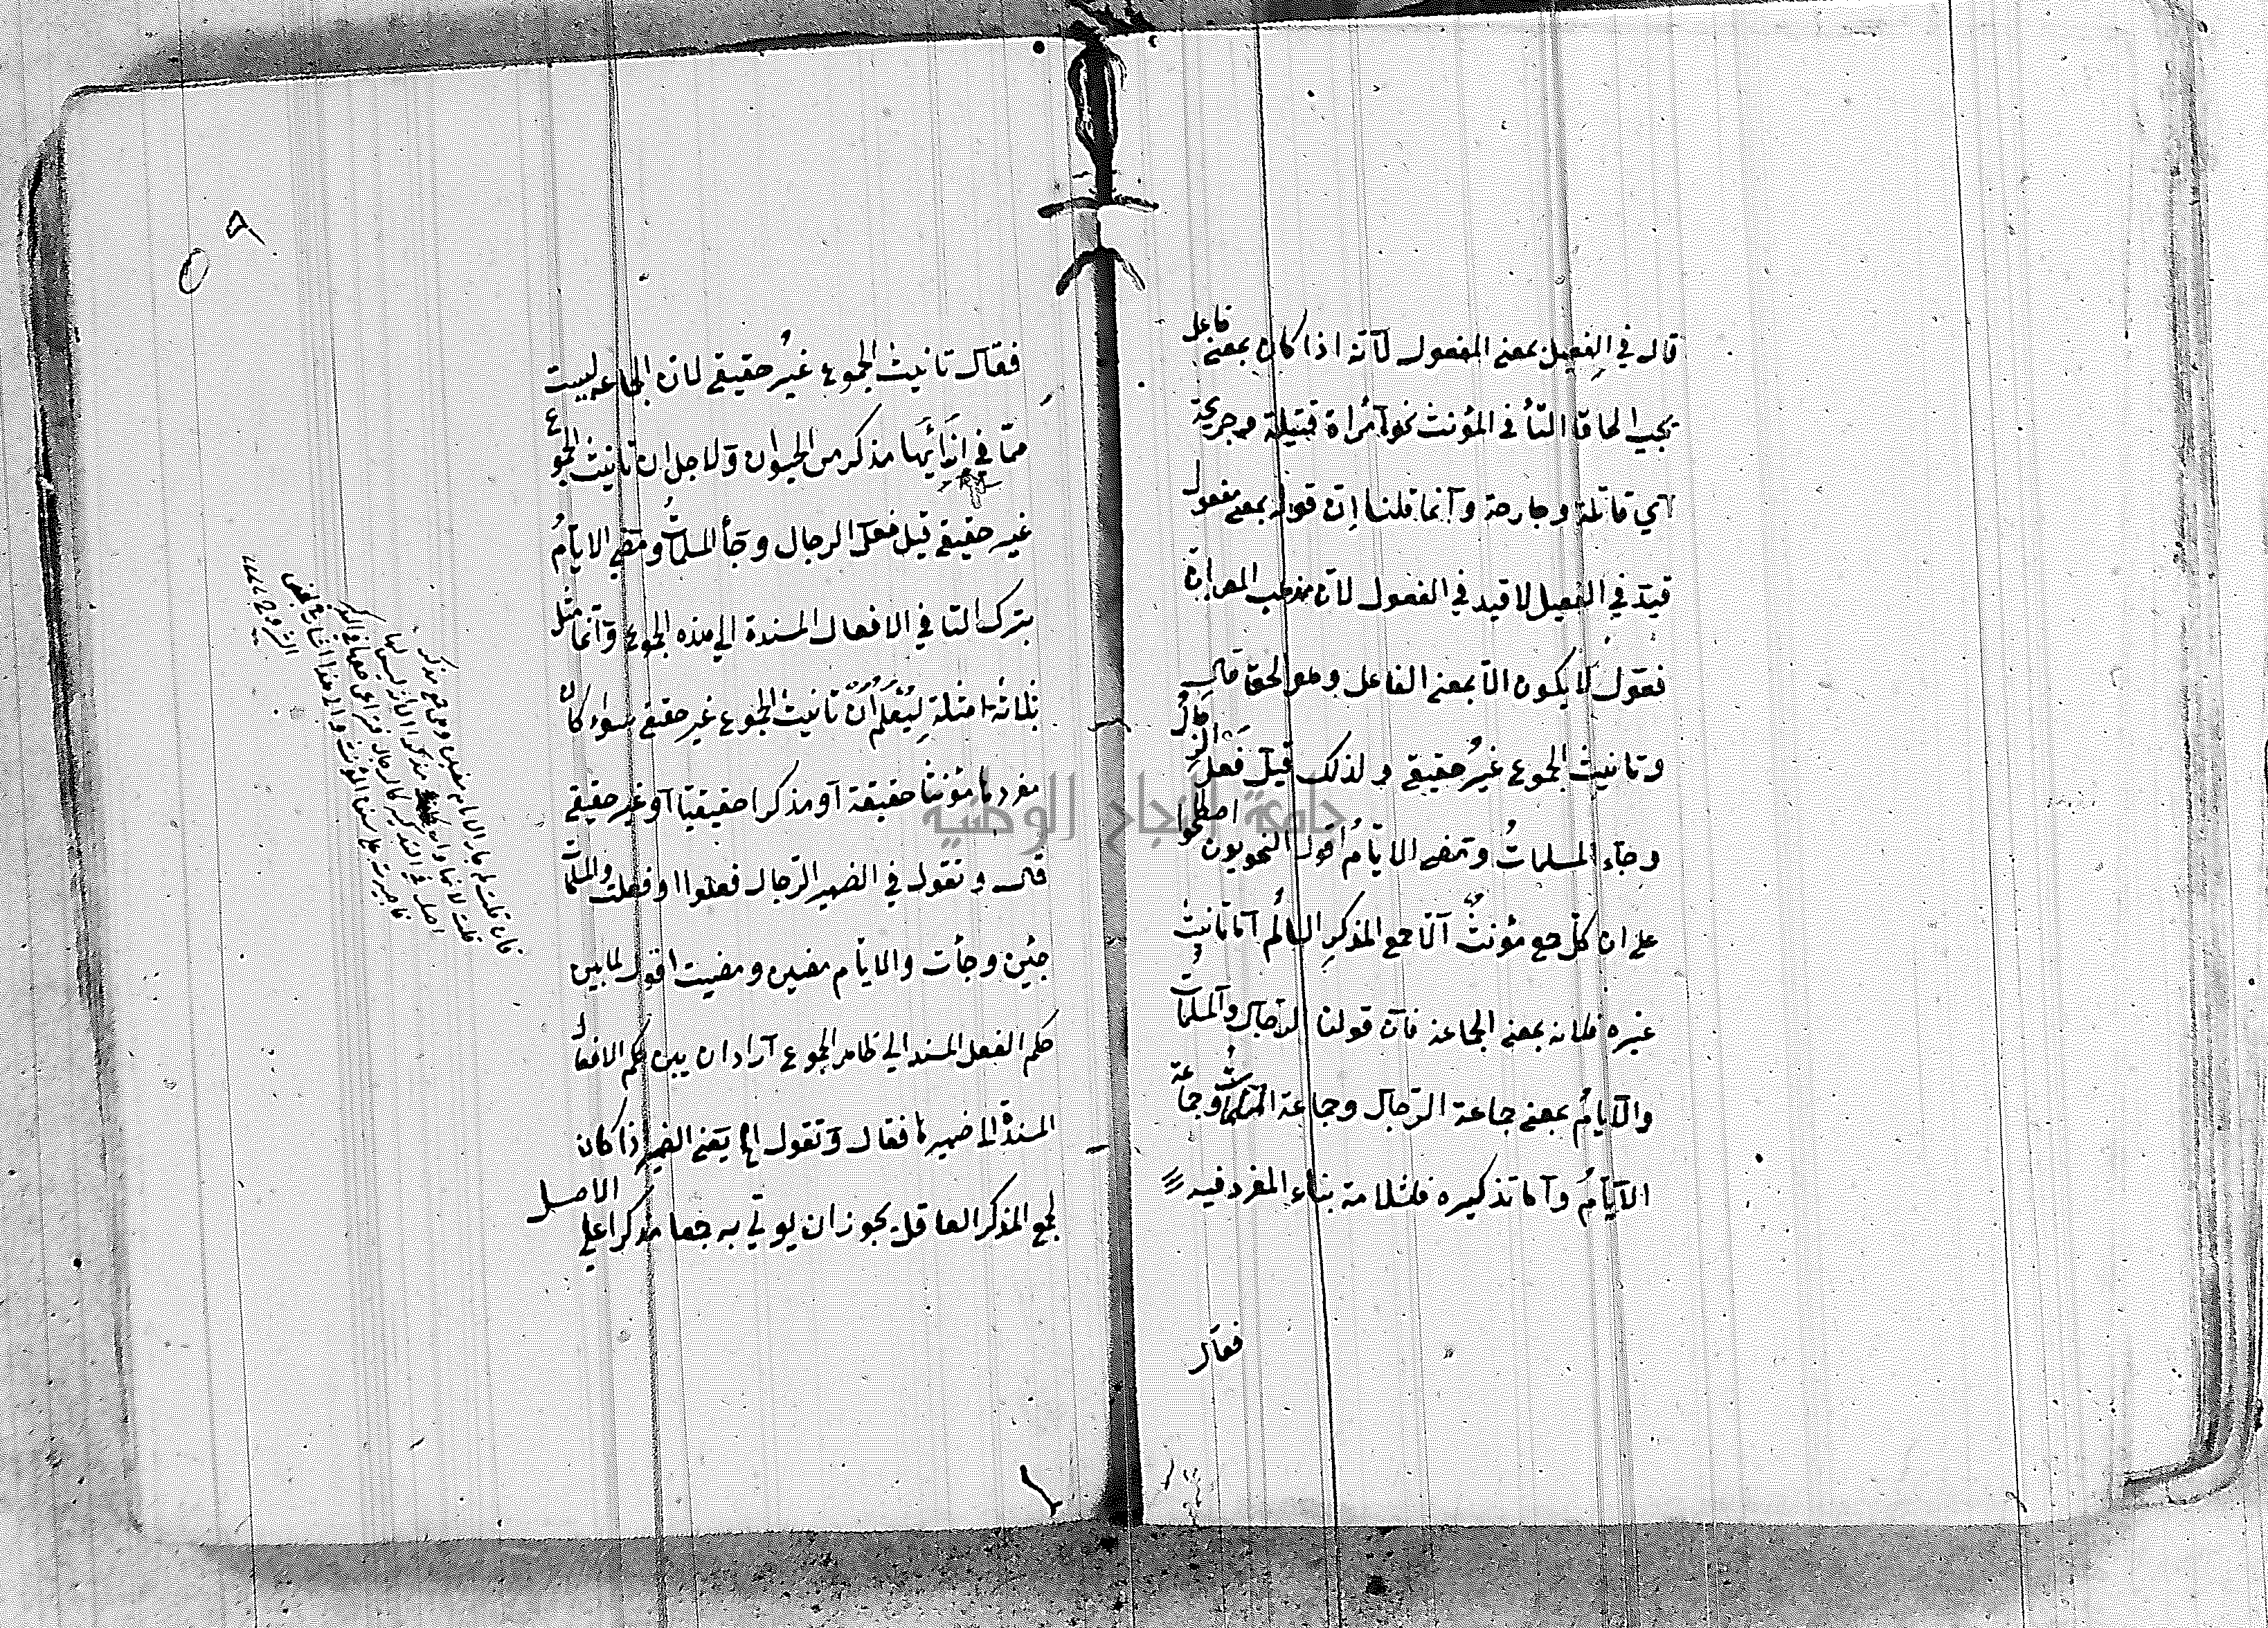 قال في الفعيل بمعنى المفعول لآنه اذا كان بمعنى فاعل
يجب الحاق التأ في المؤنث نحو آمرأة قتيلة وجريحة
آي قاتلة وجارحة وآنما قلنا إن قوله بمعنى مفعول
قيد في الفعيل لا قيد في الفعول لآن مذهب المص ان
فعول لا يكون الا بمعنى الفاعل وهو الحق قال
وتانيث الجموع غير حقيقي ولذلك قيل فعل الرجال
وجاء المسلمات وتمضى الايام اقول النحويون اصطلحوا
على ان كل جمع مؤنث آلا جمع المذكر السالم آما تانيث
غيره فلانه بمعنى الجماعة فآن قولنا الرجال والمسلمات
والآيام بمعنى جماعة الرجال وجماعة المسلمات وجماعة
الآيام وآما تذكيره فلسلامة بناء المفرد فيه
فقال
٥٨
فقال تانيث الجموع غير حقيقي لان الجماعه ليست
مما في ازائها مذكر من الحيوان ولاجل ان تانيث الجموع
غير حقيقي قيل فعل الرجال وجأ المسلمات ومضى الايام
بترك التا في الافعال المسندة الى هذه الجموع وآنما مثل
بثلاثة امثلة ليعلم ان تانيث الجموع غير حقيقي سواء كان
مفردها مؤنثا حقيقة آو مذكرا حقيقيا آو غير حقيقي
قال وتقول في الضمير الرجال فعلوا وفعلت والمسلمات
جئن وجأت والايام مضين ومضيت اقول لما بين
حكم الفعل المسند الى ظاهر الجموع آراد ان يبين حكم الافعال
المسندة الى ضميرها فقال وتقول الخ يعنى الضمير اذا كان
لجمع المذكر العاقل يجوز ان يوتي به جمعا مذكرا على الاصل
فان قلت لم جاز الايام مضين وهي جمع مذكر
جامعة النجاح الوطنية